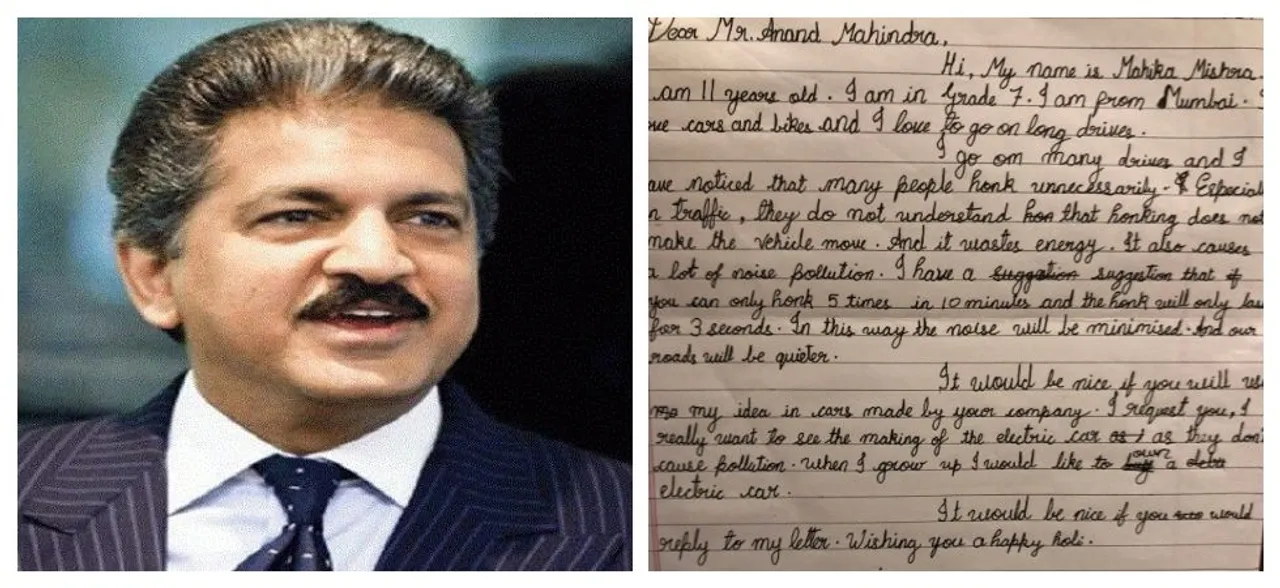 Dear Mr. Anand Mahindra,
Hi, My name is Mahika Mishra.
am 11 years old. I am in Grade 7. I am from Mumbai.
ve cars and bikes and I love to go on long drives.
I go on many drives and I
ave noticed that many people honk unnecessarily. Especial
n traffic, they do not understand that honking does not
make the vehicle move. And it wastes energy. It also causes
a lot of noise pollution. I have a suggestion that
you can only honk 5 times in 10 minutes and the honk will only la
for 3 seconds. In this way the noise will be minimised. And our
roads will be quieter.
It would be nice if you will us
my idea in cars made by your company. I request you, I
really want to see the making of the electric car as they don'
cause pollution. When I grow up I would like to own a
electric car.
It would be nice if you would
reply to my letter. Wishing you a happy holi.